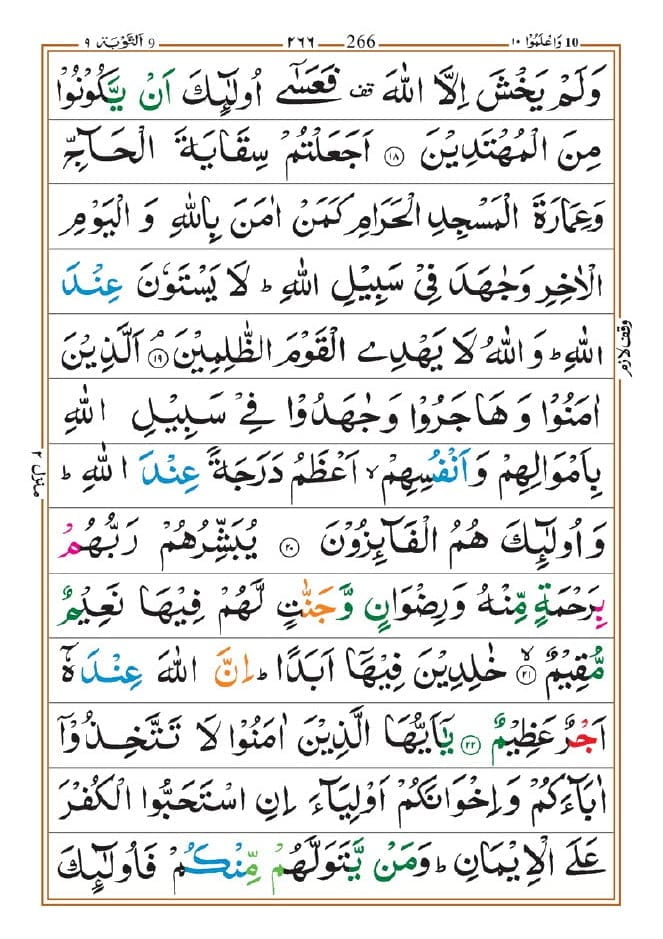 10 وَاعْلَمُوْا ١٠ 266 ٢٦٦ 9 اَلتَّوْبَة ٩
وَلَمْ يَخْشَ اِلَّا اللّٰهَ قف فَعَسٰٓى اُولٰٓئِكَ اَنْ يَّكُوْنُوْا
مِنَ الْمُهْتَدِيْنَ ۝١٨ اَجَعَلْتُمْ سِقَايَةَ الْحَآجِّ
وَعِمَارَةَ الْمَسْجِدِ الْحَرَامِ كَمَنْ اٰمَنَ بِاللّٰهِ وَ الْيَوْمِ
الْاٰخِرِ وَجٰهَدَ فِيْ سَبِيْلِ اللّٰهِ ؕ لَا يَسْتَوٗنَ عِنْدَ
اللّٰهِ ؕ وَ اللّٰهُ لَا يَهْدِى الْقَوْمَ الظّٰلِمِيْنَ ۝١٩ اَلَّذِيْنَ
وقف لازم
اٰمَنُوْا وَ هَاجَرُوْا وَ جٰهَدُوْا فِيْ سَبِيْلِ اللّٰهِ
بِاَمْوَالِهِمْ وَ اَنْفُسِهِمْ ۙ اَعْظَمُ دَرَجَةً عِنْدَ اللّٰهِ ؕ
منزل ٢
وَ اُولٰٓئِكَ هُمُ الْفَآئِزُوْنَ ۝٢٠ يُبَشِّرُهُمْ رَبُّهُمْ
بِرَحْمَةٍ مِّنْهُ وَرِضْوَانٍ وَّجَنّٰتٍ لَّهُمْ فِيْهَا نَعِيْمٌ
مُّقِيْمٌ ۙ۝٢١ خٰلِدِيْنَ فِيْهَآ اَبَدًا ؕ اِنَّ اللّٰهَ عِنْدَهٗٓ
اَجْرٌ عَظِيْمٌ ۝٢٢ يٰٓاَيُّهَا الَّذِيْنَ اٰمَنُوْا لَا تَتَّخِذُوْٓا
اٰبَآءَكُمْ وَ اِخْوَانَكُمْ اَوْلِيَآءَ اِنِ اسْتَحَبُّوا الْكُفْرَ
عَلَى الْاِيْمَانِ ؕ وَمَنْ يَّتَوَلَّهُمْ مِّنْكُمْ فَاُولٰٓئِكَ